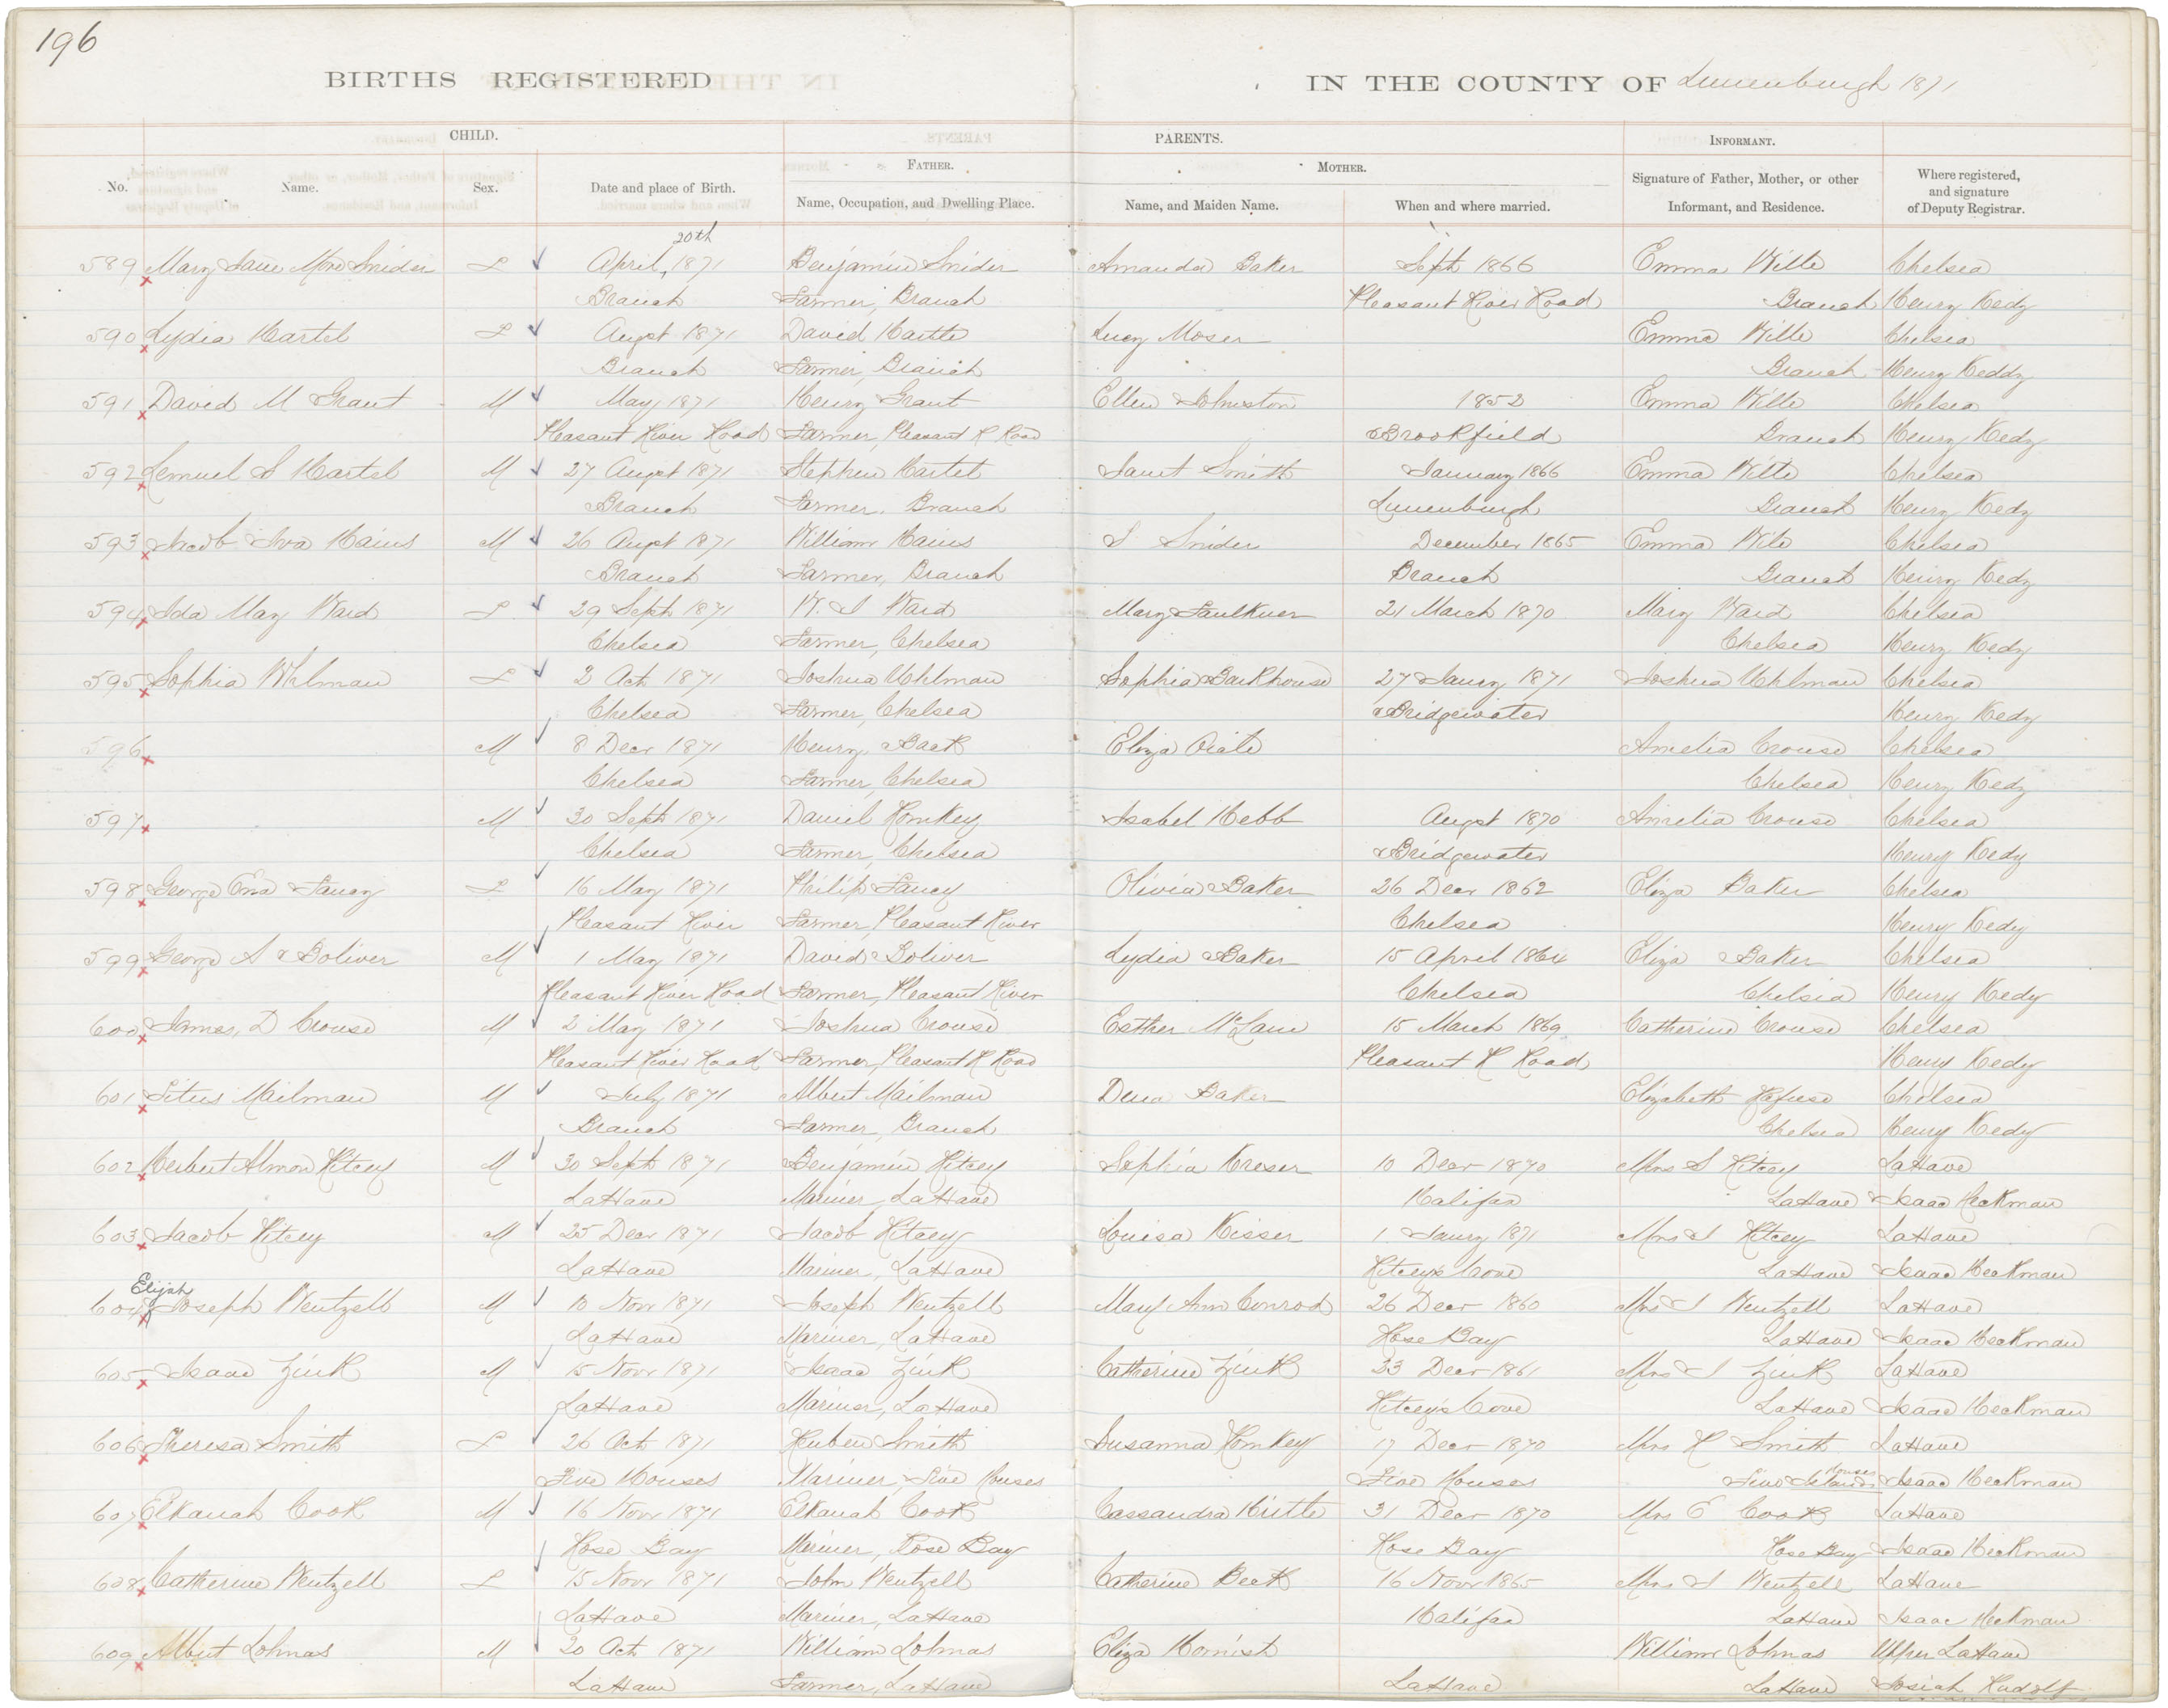 196
BIRTHS REGISTERED
IN THE COUNTY OF Lunenburgh 1871
CHILD.
PARENTS.
INFORMANT.
FATHER.
MOTHER.
No.
Name.
Sex.
Date and place of Birth.
Name, Occupation, and Dwelling Place.
Name, and Maiden Name.
When and where married.
Signature of Father, Mother, or other
Informant, and Residence.
Where registered,
and signature
of Deputy Registrar.
20th
589 Mary Jane Snider F April, 1871 Benjamin Snider Amanda Baker Sept 1866 Emma Wille Chelsea
Branch Farmer, Branch Pleasant River Road Branch Henry Kedy
590 Lydia Hartel F Augst 1871 David Hartle Lucy Moser Emma Wille Chelsea
Branch Farmer, Branch Branch Henry Keddy
591 David M Grant M May 1871 Henry Grant Ellen Johnston 1852 Emma Wille Chelsea
Pleasant River Road Farmer, Pleasant R Road Brookfield Branch Henry Kedy
592 Lemuel S Hartel M 27 Augst 1871 Stephen Hartel Janet Smith January 1866 Emma Wille Chelsea
Branch Farmer, Branch Lunenburgh Branch Henry Kedy
593 Jacob Iva Hains M 26 Augst 1871 William Hains S Snider December 1865 Emma Wile Chelsea
Branch Farmer, Branch Branch Branch Henry Kedy
594 Ida May Ward F 29 Sept 1871 W. I Ward Mary Faulkner 21 March 1870 Mary Ward Chelsea
Chelsea Farmer, Chelsea Chelsea Henry Kedy
595 Sophia Whlman F 2 Oct 1871 Joshua Uhlman Sophia Barkhouse 27 Jany 1871 Joshua Uhlman Chelsea
Chelsea Farmer, Chelsea Bridgewater Henry Kedy
596 M 8 Decr 1871 Henry Back Eliza Amelia Crouse Chelsea
Chelsea Farmer, Chelsea Chelsea Henry Kedy
597 M 30 Sept 1871 Daniel Romkey Isabel Hebb Augst 1870 Amelia Crouse Chelsea
Chelsea Farmer, Chelsea Bridgewater Henry Kedy
598 George Fancy F 16 May 1871 Philip Fancy Olivia Baker 26 Decr 1862 Eliza Baker Chelsea
Pleasant River Farmer, Pleasant River Chelsea Henry Kedy
599 George A Boliver M 1 May 1871 David Boliver Lydia Baker 15 April 1864 Eliza Baker Chelsea
Pleasant River Road Farmer, Pleasant River Chelsea Chelsea Henry Kedy
600 James, D Crouse M 2 May 1871 Joshua Crouse Esther McLain 15 March 1869 Catherine Crouse Chelsea
Pleasant River Road Farmer, Pleasant R Road Pleasant R Road Henry Kedy
601 Titus Mailman M July 1871 Albert Mailman Dena Baker Elizabeth Chelsea
Branch Farmer, Branch Chelsea Henry Kedy
602 Herbert Almon Ritcey M 30 Sept 1871 Benjamin Ritcey Sophia Creser 10 Decr 1870 Mrs S Ritcey LaHave
LaHave Mariner, LaHave Halifax LaHave Isaac Heckman
603 Jacob Ritcey M 25 Decr 1871 Jacob Ritcey Louisa Risser 1. Jany 1871 Mrs J Ritcey LaHave
LaHave Mariner, LaHave Ritcey's Cove LaHave Isaac Heckman
Elijah
604 Joseph Wentzell M 10 Novr 1871 Joseph Wentzell Mary Ann Conrod 26 Decr 1860 Mrs J Wentzell LaHave
LaHave Mariner, LaHave Rose Bay LaHave Isaac Heckman
605 Isaac Zink M 15 Novr 1871 Isaac Zink Catherine Zink 23 Decr 1861 Mrs I Zink LaHave
LaHave Mariner, LaHave Ritcey's Cove LaHave Isaac Heckman
606 Theresa Smith F 26 Oct 1871 Reuben Smith Susanna Romkey 17 Decr 1870 Mrs R Smith LaHave
Five Houses Mariner, Five Houses Five Houses Five Islands Houses Isaac Heckman
607 Elkanah Cook M 16 Novr 1871 Elkanah Cook Cassandra Hirtle 31 Decr 1870 Mrs E Cook LaHave
Rose Bay Mariner, Rose Bay Rose Bay Rose Bay Isaac Heckman
608 Catherine Wentzell F 15 Novr 1871 John Wentzell Catherine Beck 16 Novr 1865 Mrs J Wentzell LaHave
LaHave Mariner, LaHave Halifax LaHave Isaac Heckman
609 Albert Lohnas M 20 Oct 1871 William Lohnas Eliza Hornish William Lohnas Upper LaHave
LaHave Farmer, LaHave LaHave LaHave Josiah Rudolf